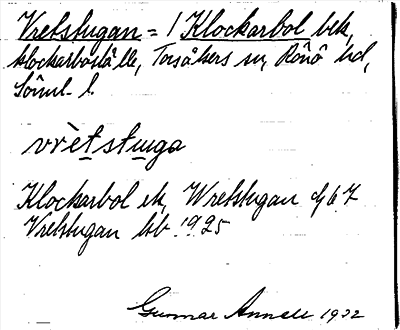 Vretstugan = 1 Klockarbol bek,
klockarboställe, Torsåkers sn, Rönö hd,
Söml. l.
vrètstuga
Klockarbol ek, Wretstugan
Vretstugan hb 1925
Gunnar Annell 1932